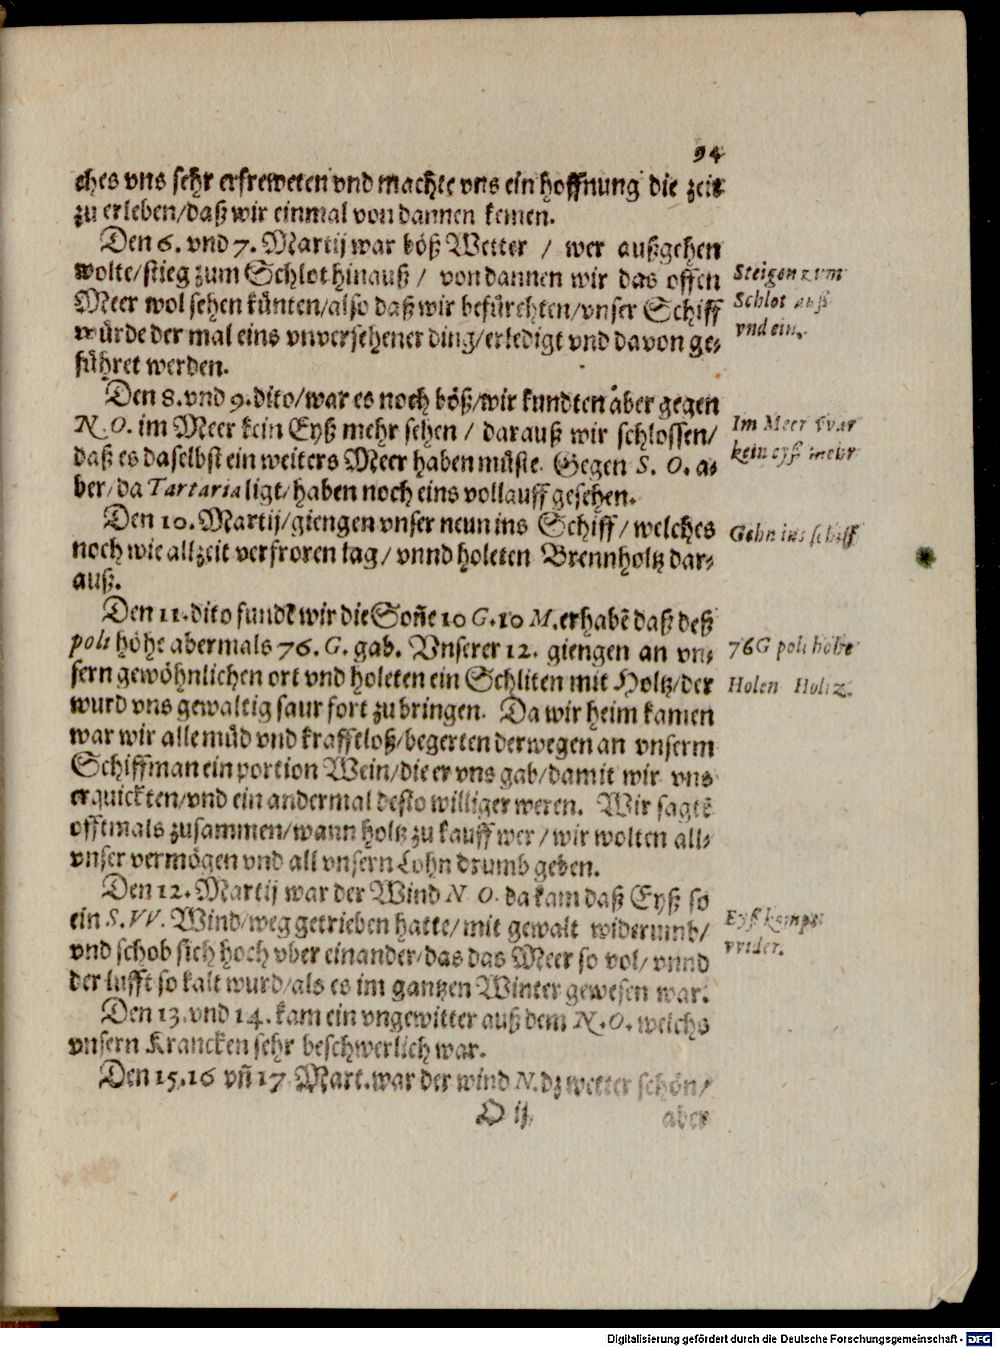 94
ches vns sehr erfreweten vnd machte vns ein hoffnung die zeit
zu erleben/daß wir einmal von dannen kemen.
Den 6. vnd 7. Martij war böß Wetter / wer außgehen
wolte/stieg zum Schlot hinauß / von dannen wir das offen
Meer wol sehen künten/also daß wir befürchten/vnser Schiff
würde der mal eins vnversehener ding/erledigt vnd davon ge-
führet werden.
Steigen zum
Schlot auß
vnd ein.
Den 8. vnd 9. dito/war es noch böß/wir kundten aber gegen
N. O. im Meer kein Eyß mehr sehen / darauß wir schlossen/
daß es daselbst ein weiters Meer haben müste. Gegen S. O. a-
ber/da Tartaria ligt/haben noch eins vollauff gesehen.
Im Meer war
kein eyß mehr
Den 10. Martij/giengen vnser neun ins Schiff/welches
noch wie allzeit verfroren lag/ vnnd holeten Brennholtz dar-
auß.
Gehn ins schiff
Den 11. dito fundẽ wir die Soñe 10 G. 10 M. erhabẽ daß deß
poli höhe abermals 76. G. gab. Vnserer 12. giengen an vn-
sern gewöhnlichen ort vnd holeten ein Schliten mit Holtz/der
wurd vns gewaltig saur fort zu bringen. Da wir heim kamen
war wir alle müd vnd krafftloß/begerten derwegen an vnserm
Schiffman ein portion Wein/die er vns gab/damit wir vns
erquickten/vnd ein andermal desto williger weren. Wir sagtẽ
offtmals zusammen/wann holtz zu kauff wer/wir wolten all-
vnser vermögen vnd all vnsern Lohn drumb geben.
76G poli höhe
Holen Holtz.
Den 12. Martij war der Wind N O. da kam daß Eyß so
ein S. VV. Wind/weg getrieben hatte/mit gewalt widerumb/
vnd schob sich hoch vber einander/das das Meer so vol/vnnd
der lufft so kalt wurd/als es im gantzen Winter gewesen war.
Eyß kompt
wider.
Den 13. vnd 14. kam ein vngewitter auß dem N. O. welchs
vnsern Krancken sehr beschwerlich war.
Den 15. 16 vñ 17 Mart. war der wind N. dz wetter schön/
O ij
aber
Digitalisierung gefördert durch die Deutsche Forschungsgemeinschaft - DFG